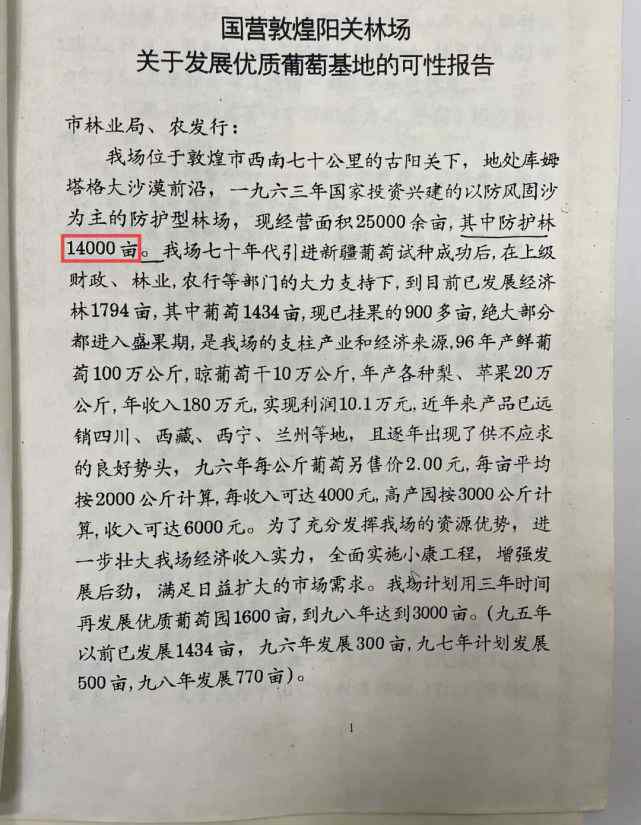 国营敦煌阳关林场
关于发展优质葡萄基地的可性报告
市林业局、农发行：
我场位于敦煌市西南七十公里的古阳关下，地处库姆
塔格大沙漠前沿，一九六三年国家投资兴建的以防风固沙
为主的防护型林场，现经营面积25000余亩,其中防护林
14000亩。我场七十年代引进新疆葡萄试种成功后,在上级
财政、林业,农行等部门的大力支持下,到目前已发展经济
林1794亩,其中葡萄1434亩,现已挂果的900多亩,绝大部分
都进入盛果期,是我场的支柱产业和经济来源,96年产鲜葡
萄100万公斤,晾葡萄干10万公斤,年产各种梨、苹果20万
公斤,年收入180万元,实现利润10.1万元,近年来产品已远
销四川、西藏、西宁、兰州等地，且逐年出现了供不应求
的良好势头，九六年每公斤葡萄另售价2.00元,每亩平均
按2000公斤计算,每收入可达4000元,高产园按3000公斤计
算,收入可达6000元。为了充分发挥我场的资源优势，进
一步壮大我场经济收入实力，全面实施小康工程，增强发
展后劲，满足日益扩大的市场需求。我场计划用三年时间
再发展优质葡萄园1600亩,到九八年达到3000亩。(九五年
以前已发展1434亩，九六年发展300亩,九七年计划发展
500亩,九八年发展770亩)。
1